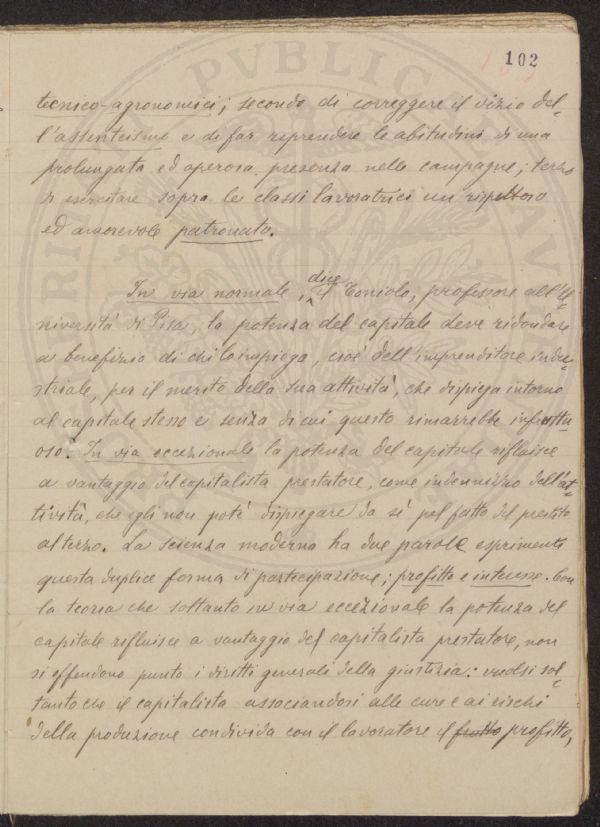 102
tecnico-agronomici; secondo di correggere il vizio del-
l'assenteismo e di far riprendere le abitudini di una
prolungata ed operosa presenza nelle campagne; terzo
di esercitare sopra le classi lavoratrici un rispettoso
ed amorevole patronato.
In via normale, dice il Toniolo, professore all'U-
niversità di Pisa, la potenza del capitale deve ridondare
a benefizio di chi lo impiega, cioè dell'imprenditore indu-
striale, per il merito della sua attività, che dispiega intorno
al capitale stesso e senza di cui questo rimarrebbe infruttu-
oso. In via eccezionale la potenza del capitale rifluisce
a vantaggio del capitalista prestatore, come indennizzo dell'at-
tività, che egli non potè dispiegare da sè pel fatto del prestito
al terzo. La scienza moderna ha due parole esprimenti
questa duplice forma di partecipazione; profitto e interesse. Con
la teoria che soltanto in via eccezionale la potenza del
capitale rifluisce a vantaggio del capitalista prestatore, non
si offendono punto i diritti generali della giustizia: vuolsi sol-
tanto che il capitalista associandosi alle cure e ai rischi
della produzione condivida con il lavoratore il frutto profitto,